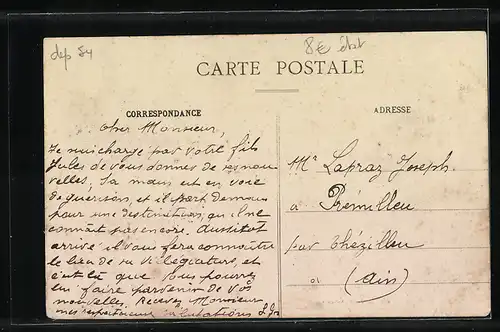 dep 54
8€ état
CARTE POSTALE
CORRESPONDANCE
ADRESSE
Cher Monsieur,
Je suis chargé par votre fils
Jules de vous donner de ses nou-
velles, Sa main est en voie
de guerison, et il part demain
pour une destination qu'il ne
connaît pas encore. Aussitot
arrivé il vous fera connaître
le lieu de sa villégiature, et
c'est là que vous pourrez
lui faire parvenir de vos
nouvelles. Recevez Monsieur
mes respectueuses salutations
Mr Lapraz Joseph
à Prémilleu
par Thézillieu
(Ain)